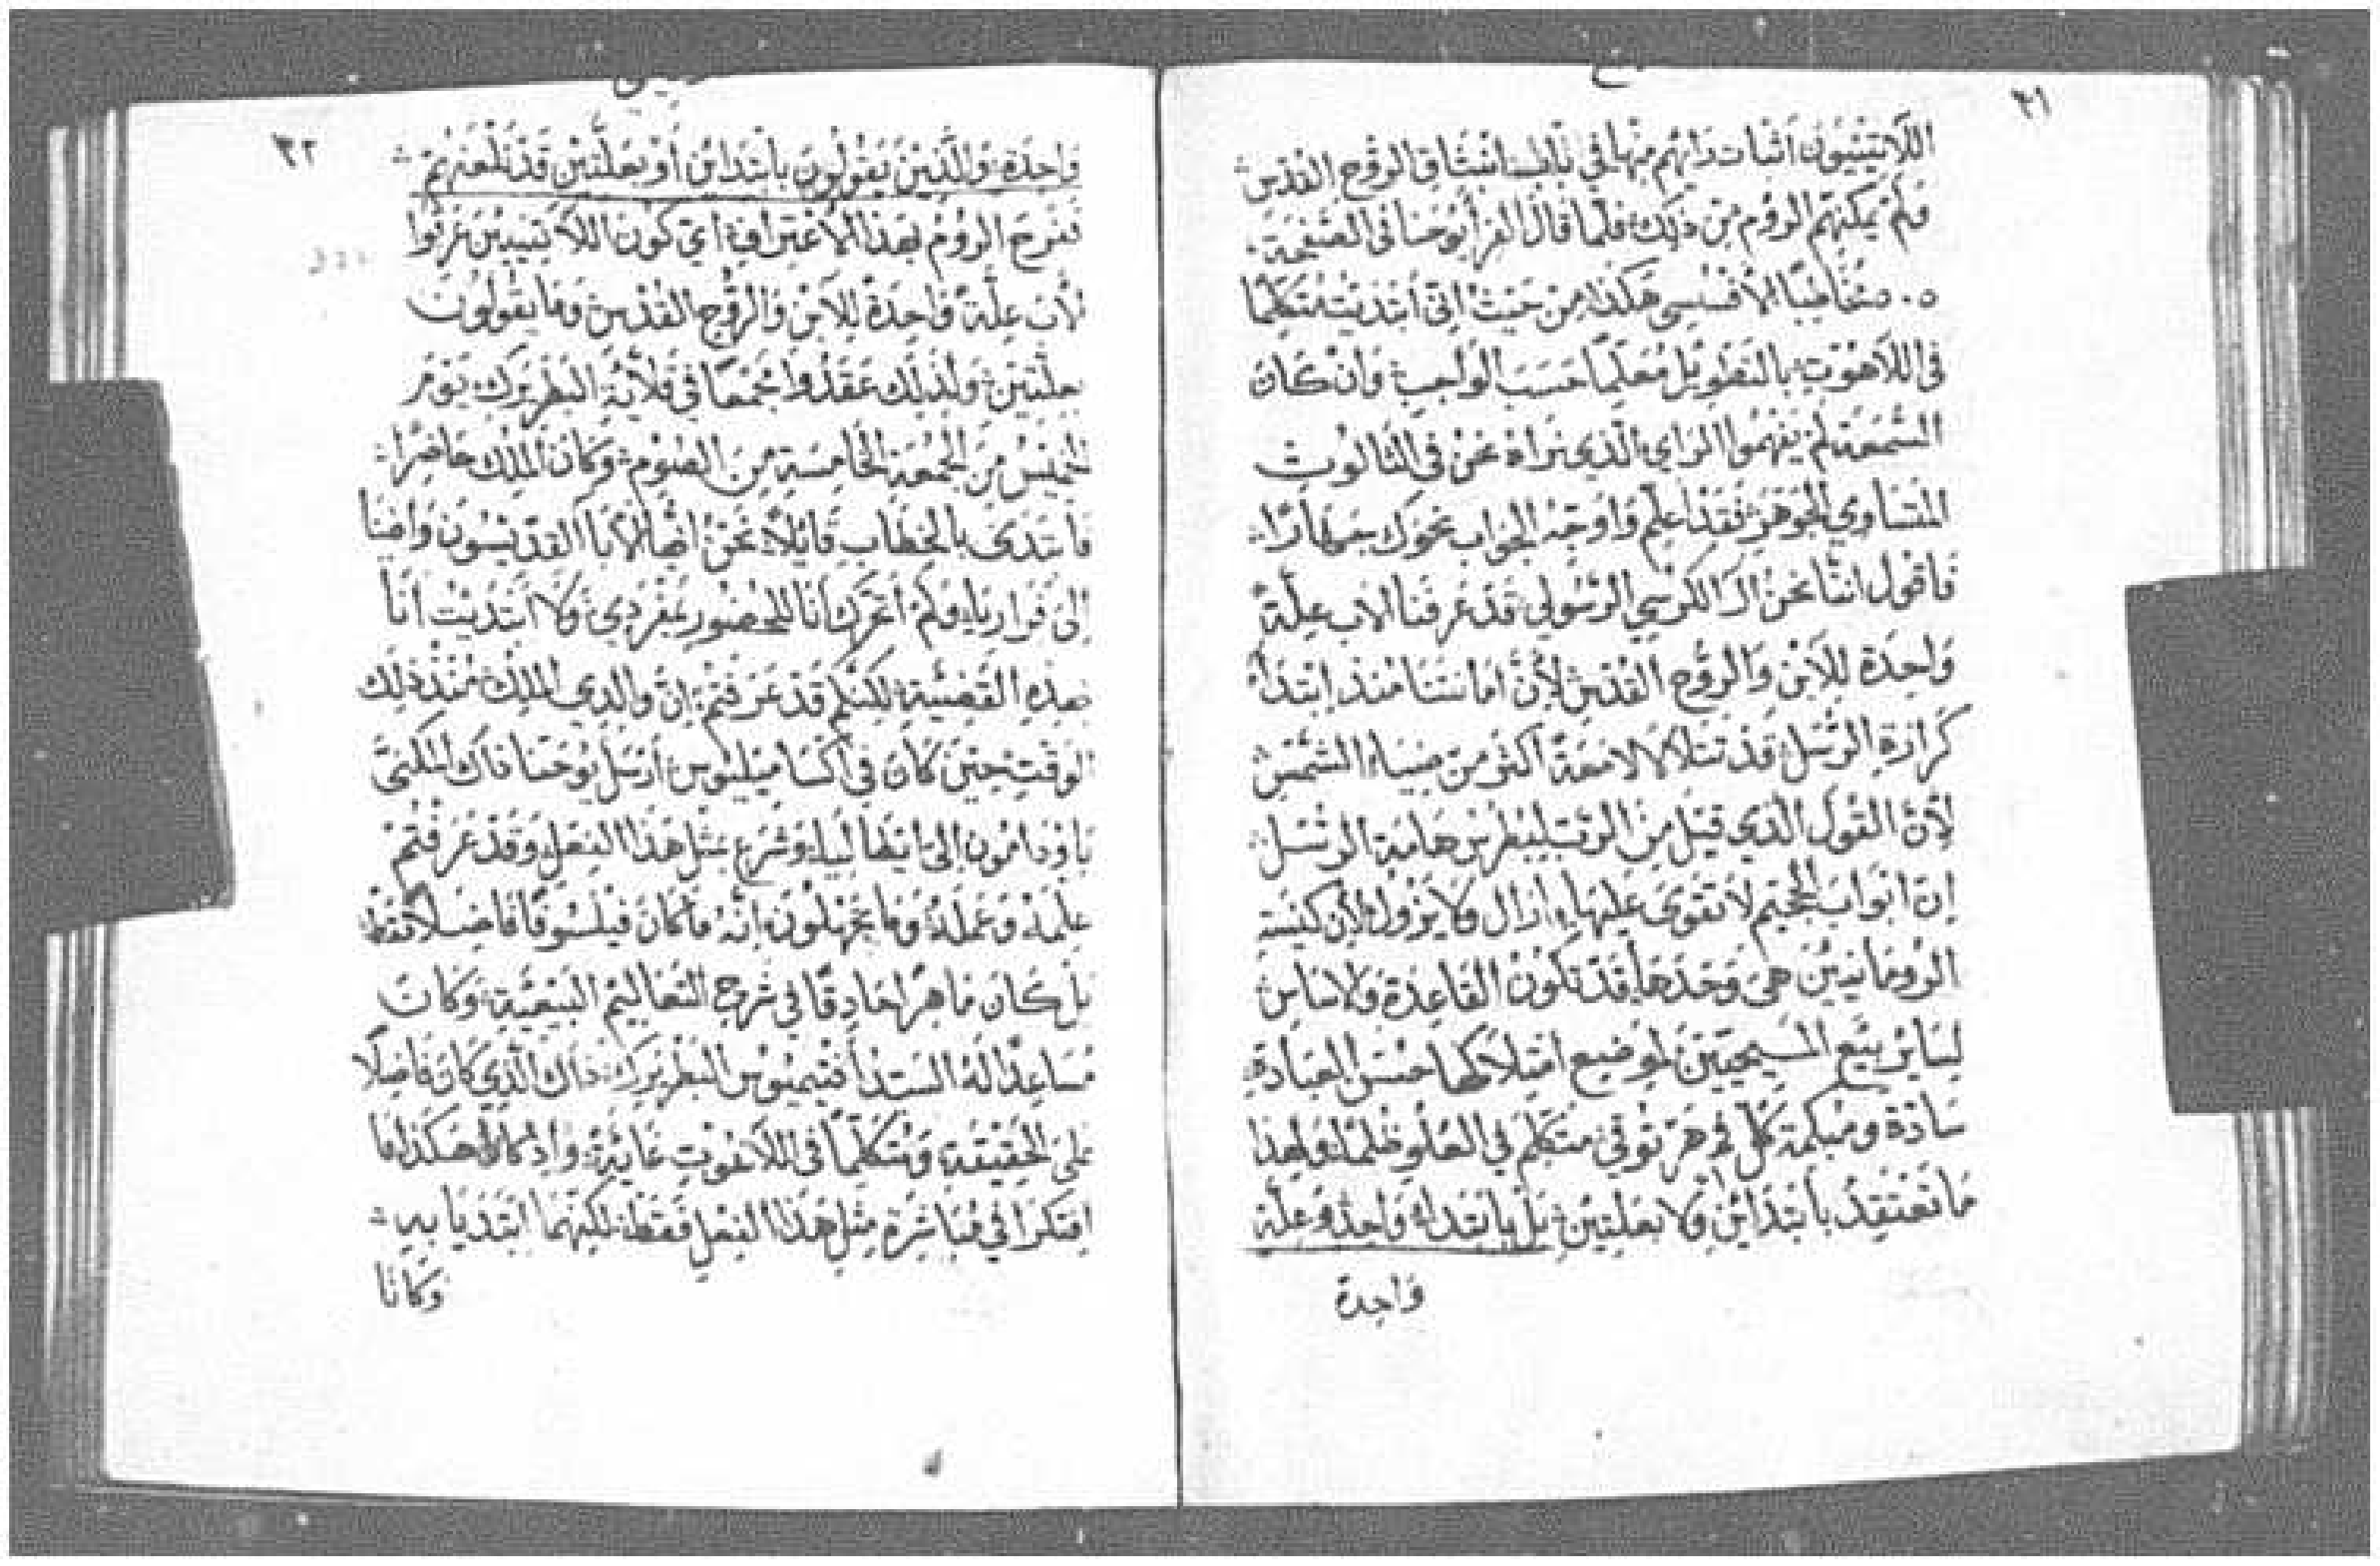 ٣١
اللَّاتِينِيُّون اثبات رَايهم منها في بَاب انبثاق الرُّوح القُدس
وَلم يمكنهم الروُم من ذلِك فلمَا قال الفرا يُوحَنا في الصَّفِيحَة
٥٠٥ مخاطبًا الأفسسي هَكذا من حَيثُ اني أبتديت متكلمًا
في اللاهُوت بالتَطويل مُعلمًا حَسَب الوَاجب وَان كان
السَّمعَة لم يفهمُوا الرَاي الذي نَراه نحنُ في الثالوث
المتسَاوي الجَوهَر فقَد اعلم وَاوجه الجوَاب نحوَك جهارًا
فاقول اننا نحن الكرسي الرسُولي قد عَرفنا الاب علة
وَاحِدَة للابن وَالروح القُدس لأن امانتنا منذ ابتدا
كرازة الرسُل قد تتلالا لامعَة اكثر من ضيَاء الشمس
لأن القول الذي قيل من الرب لبطرس هَامة الرسُل
ان ابوَاب الجحيم لا تقوى عَليها ما زال ولا يزول لأن كنيسَة
الرومَانيين هي وَحدَهَا قد تكون القاعدَة والاسَاس
لسَاير بيَع المسيحيين لموضع امتلاكها حسن العبَادة
سَادة ومبكمة كل فم هرتوقي متكلم في العلو ظلمًا ولهذا
مَا نعتقد بابتدَائن ولا بعلتين بل بابتداء واحد وعلة
واحدة
٣٢
وَاحِدَة وَالَّذِينَ يَقُولُونَ بابتدائن أو بعلتين قد نلعنهم
ففرح الروُم بهذا الاعتراف اي كون اللاتينيين عَرفوا
الاب علة وَاحدَة للابن وَالروح القُدس وَمَا يقولون
بعلتين ولذلك عَقدُوا مجمعًا في قلاية البطريَرك يَوم
الخميس من الجمعة الخامسَة من الصوم وكان الملك حَاضرًا
فابتدَى بالخطاب قايلًا نحن ايها الابا القديسُون وَافينا
الى فراريا ولم اتحرك انا للحضُور بمفرَدي ولا ابتديت انا
بهذه القضيَّة لكنكم قد عَرفتم ان والدي الملك منذ ذلك
الوقت حين كان في اكساميليُوس ارسَل يُوحَنا ذاك المكنى
باودامُون الى ايطاليا وشرع بمثل هذا الفعل وقد عَرفتم
علمَهُ وَعَمَلَهُ وما تجهلون انه مَا كان فيلسُوفًا فاضلًا فقط
بل كان مَاهرًا حَادقًا في شرح التعاليم البيعيَّة وكان
مسَاعدًا لهُ السَيد أفتيميوس البطريَرك ذاك الذي كان فاضلًا
على الحقيقة ومتكلمًا في اللاهُوت غاية واد كانا هكذا ما
افتكرا في مبَاشرَة مثل هذا الفعل فقط لكنهُما ابتديا به
وكانا